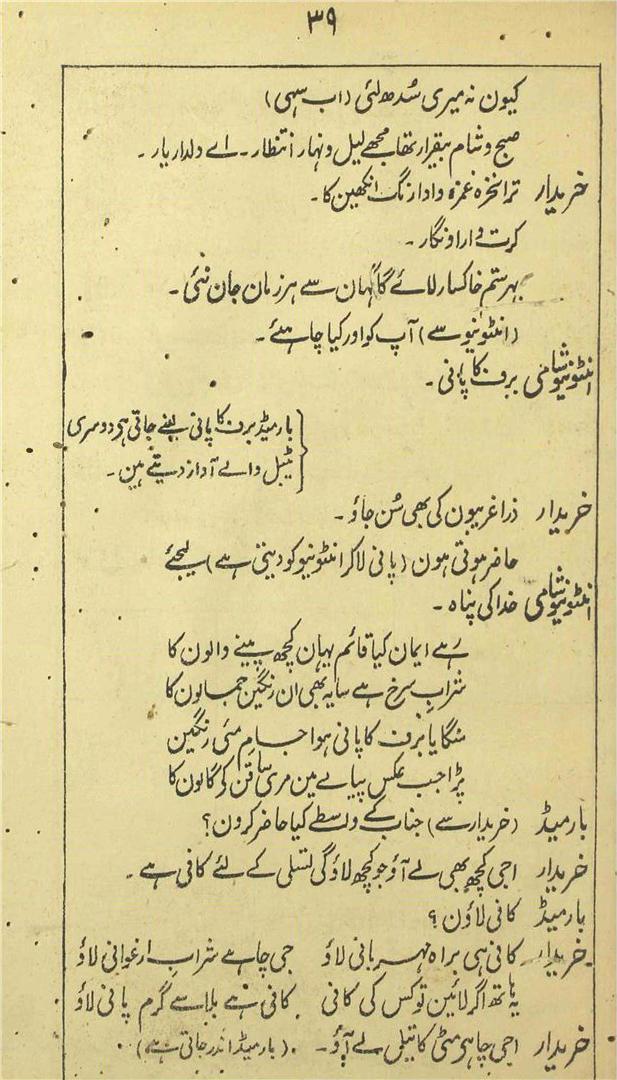 ۳۹
کیون نہ میری سُدھ لئی (اب سہی)
صبح و شام بیقرار تھا مجھے لیل و نہار انتظار۔ اے دلدار یار۔
خریدار ترا نخرہ غمزہ و ادا رنگ انکھین کا۔
کرت وار او نگار۔
بہر ستم خاکسار لائے گا کہان سے ہر زمان جان نئی۔
(انٹونیو سے) آپ کو اور کیا چاہئے۔
انٹونیو شامی برف کا پانی۔
بارمیڈ برف کا پانی لینے جاتی ہی دوسری
ٹیبل والے آواز دیتے ہین۔
خریدار ذرا غریبون کی بھی سُن جاؤ۔
حاضر ہوتی ہون (پانی لاکر انٹونیو کو دیتی ہے) لیجئے
انٹونیو شامی خدا کی پناہ۔
رہے ایمان کیا قائم یہان کچھ پینے والون کا
شراب سرخ ہے سایہ بھی ان رنگین جمالون کا
منگایا برف کا پانی ہوا جام مئی رنگین
پڑا جب عکس پیالے مین مری ساقن کے گالون کا
بارمیڈ (خریدار سے) جناب کے واسطے کیا حاضر کرون؟
خریدار اجی کچھ بھی لے آؤ جو کچھ لاؤگی تسلی کے لئے کافی ہے۔
بارمیڈ کافی لاؤن؟
خریدار کافی ہی براہ مہربانی لاؤ جی چاہے شراب ارغوانی لاؤ
یہ ہاتھ اگر لائین تو کس کی کافی کافی ہے بلا سے گرم پانی لاؤ
خریدار اجی چاہی مٹی کا تیل لے آؤ۔ (بارمیڈ اندر جاتی ہے)